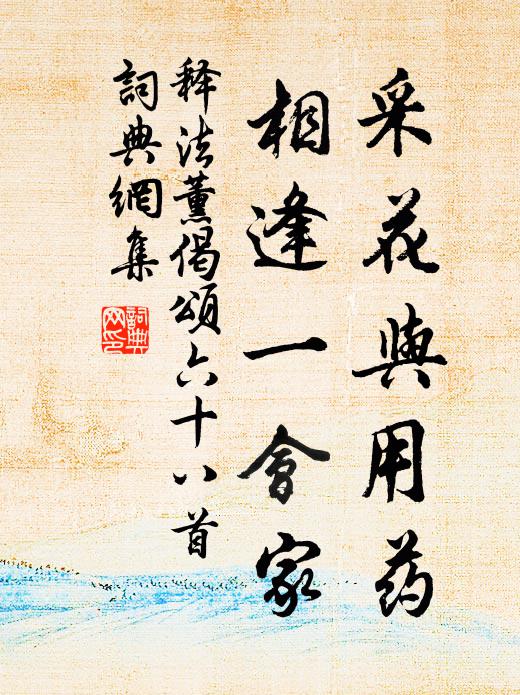 采花與用药
相逢一會家
释法薰偈頌六十八首
詞典網集
詞典
网印